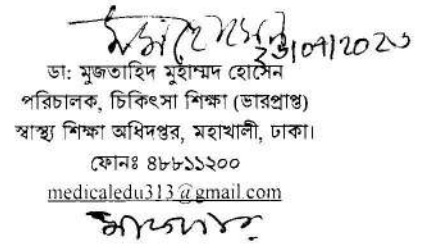 ডা: মুজতাহিদ মুহাম্মদ হোসেন
পরিচালক, চিকিৎসা শিক্ষা (ভারপ্রাপ্ত)
স্বাস্থ্য শিক্ষা অধিদপ্তর, মহাখালী, ঢাকা।
ফোনঃ ৪৮৮১১২০০
medicaledu313@gmail.com